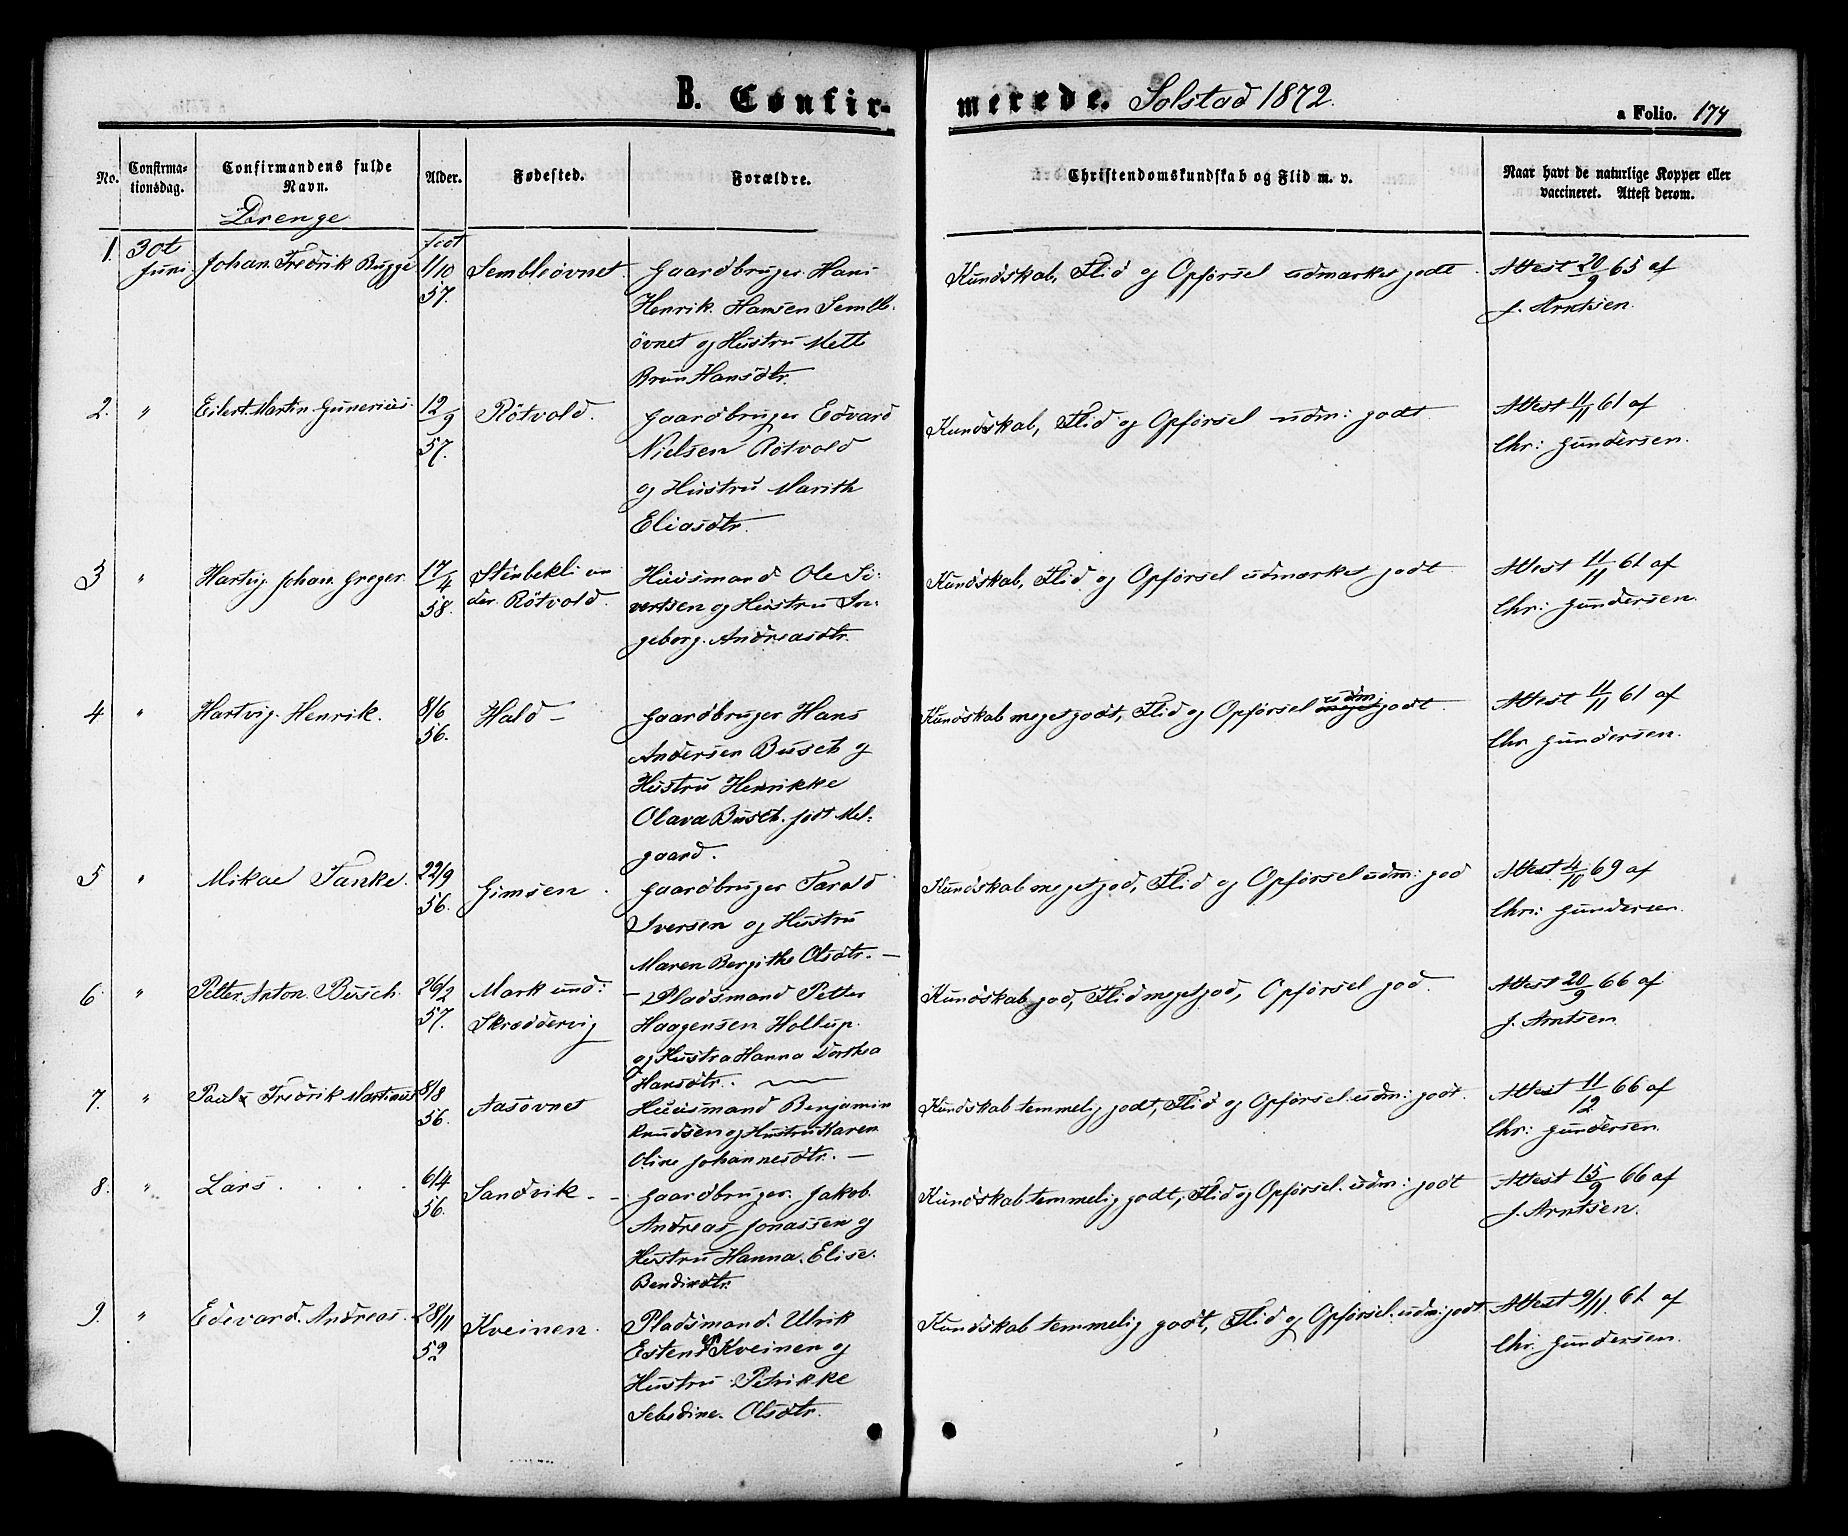 B. Confirmerede. Solstad 1872.
a Folio. 174
No.
Confirmationsdag.
Confirmandens fulde Navn.
Alder.
Fødested.
Forældre.
Christendomskundskab og Flid m. v.
Naar havt de naturlige Kopper eller vaccineret. Attest derom.
Drenge
1. 30t Juni
Johan Fredrik Bugge
født 1/10 57.
Semblsövnet.
Gaardbruger Hans
Henrik Hansen Sembl-
övnet og Hustru Mett
Brun Hansdtr.
Kundskab, Flid og Opførsel udmærket godt.
Attest 20/9 65 af
J. Arntsen.
2. "
Eilert Martin Gunerius.
12/9 57.
Rötvold.
Gaardbruger Edvard
Nielsen Rötvold
og Hustru Marith
Eliasdtr.
Kundskab, Flid og Opførsel udm: godt
Attest 11/11 61 af
Chr: Gundersen.
3 "
Hartvig Johan Greger.
17/4 58.
Stenbekli un-
der Rötvold.
Huusmand Ole Si-
vertsen og Hustru In-
geborg Andreasdtr.
Kundskab, Flid og Opførsel udmærket godt
Attest 11/11 61 af
Chr: Gundersen.
4 "
Hartvig Henrik.
8/6 56.
Hald –
Gaardbruger Hans
Andersen Busch og
Hustru Henrikke
Olava Busch født Mel-
gaard.
Kundskab meget godt, Flid og Opførsel udm: godt.
Attest 11/11 61 af
Chr Gundersen.
5 "
Mikal Tanke.
22/9 56.
Gimsen.
Gaardbruger Tarald
Iversen og Hustru
Maren Bergithe Olsdtr. –
Kundskab meget god, Flid og Opførsel udm: god
Attest 4/10 69 af
Chr: Gundersen.
6. "
Petter Anton Busch.
26/2 57.
Mark und:
Skræddervig
– Pladsmand Petter
Haagensen Holtup.
og Hustru Hanna Dorthea
Hansdtr. –
Kundskab god, Flid meget god, Opførsel god.
Attest 20/9 66 af
J. Arntsen.
7. "
Paul Fredrik Martinus
8/8 56.
Aasovnet
Huusmand Benjamin
Knudsen og Hustru Karen
Oline Johannesdtr. –
Kundskab temmelig godt, Flid og Opførsel udm: godt.
Attest 11/12 66 af
Chr: Gundersen.
8. "
Lars . . . .
6/4 56.
Sandvik –
– Gaardbruger Jakob
Andreas Jonassen og
Hustru Hanna Elise.
Bendixdtr.
Kundskab temmelig godt, Flid og Opførsel udm: godt
Attest 15/9 66 af
J. Arntsen.
9. "
Edevard Andreas.
28/11 52
Kveinen.
Pladsmand Ulrik
Estensen Kveinen og
Hustru Petrikke
Sebedine Olsdtr.
Kundskab temmelig godt, Flid og Opførsel udm: godt
Attest 9/11 61 af
Chr Gundersen.